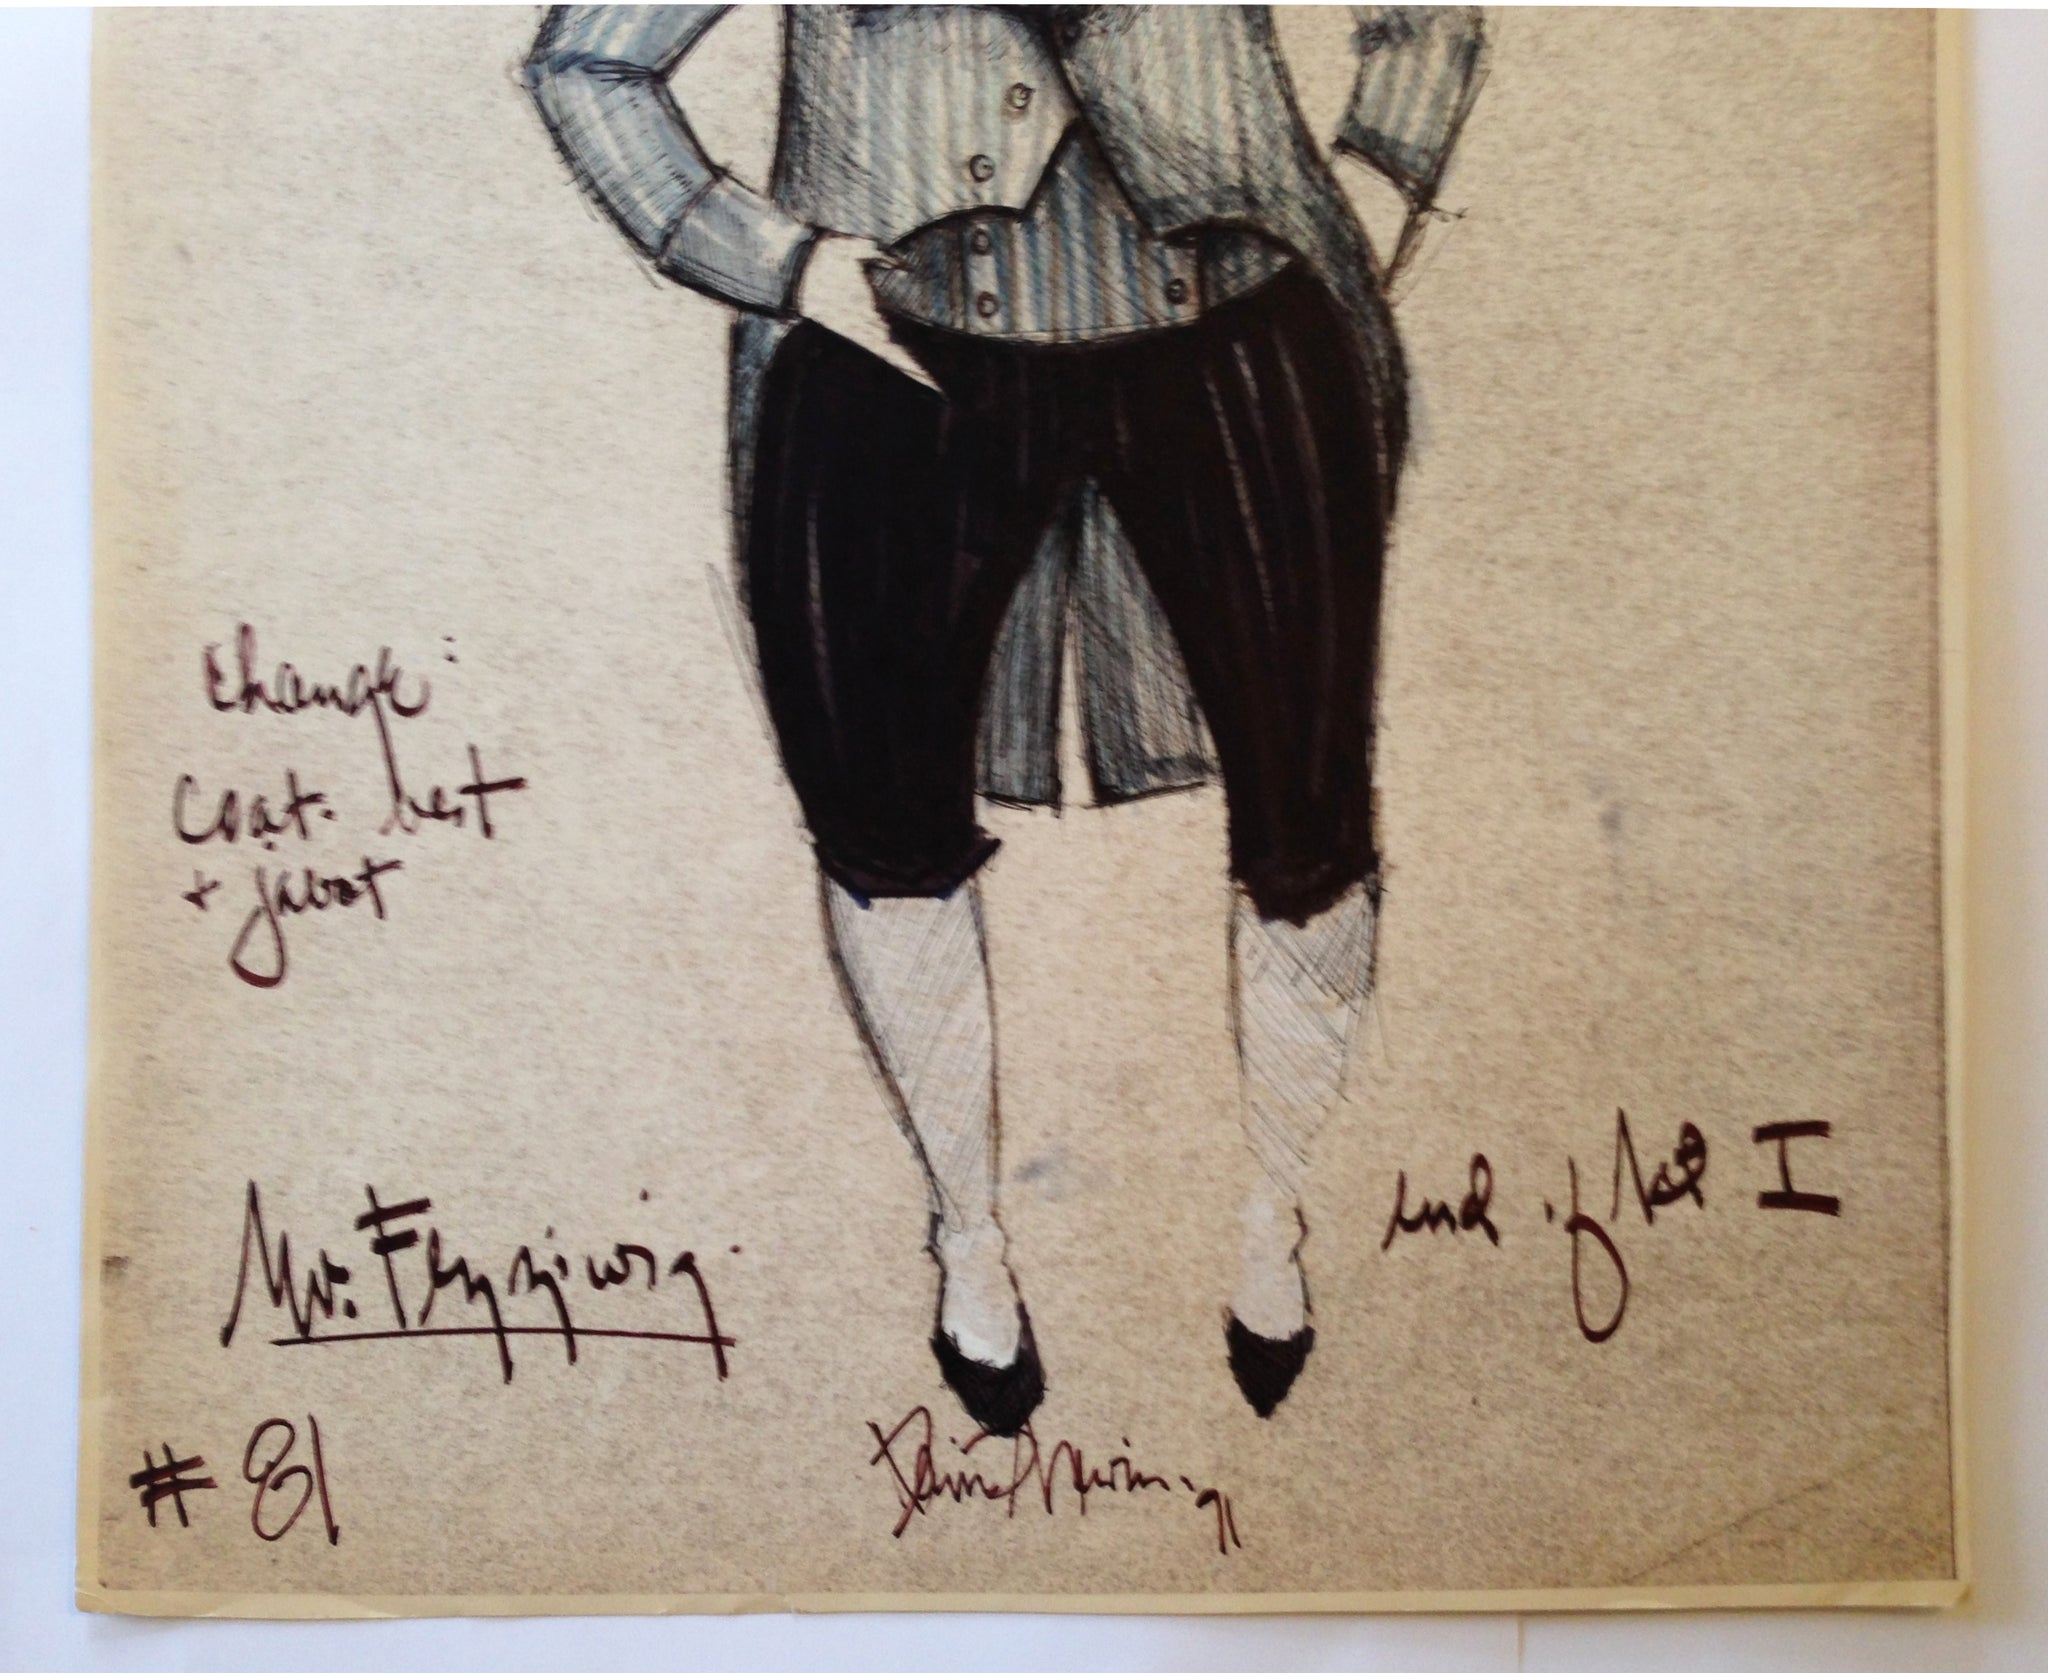 change:
coat. vest
+ jabot
end of Act I
Mr. Fezziwig.
# 81
David 91